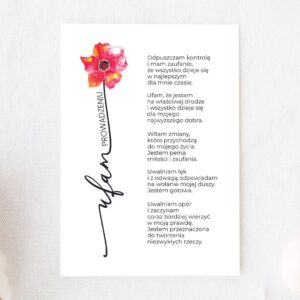 ufam PROWADZENIU
Odpuszczam kontrolę
i mam zaufanie,
że wszystko dzieje się
w najlepszym
dla mnie czasie.
Ufam, że jestem
na właściwej drodze
i wszystko dzieje się
dla mojego
najwyższego dobra.
Witam zmiany,
które przychodzą
do mojego życia.
Jestem pełna
miłości i zaufania.
Uwalniam lęk
i z odwagą odpowiadam
na wołanie mojej duszy.
Jestem gotowa.
Uwalniam opór
i zaczynam
coraz bardziej wierzyć
w moją prawdę.
Jestem przeznaczona
do tworzenia
niezwykłych rzeczy.